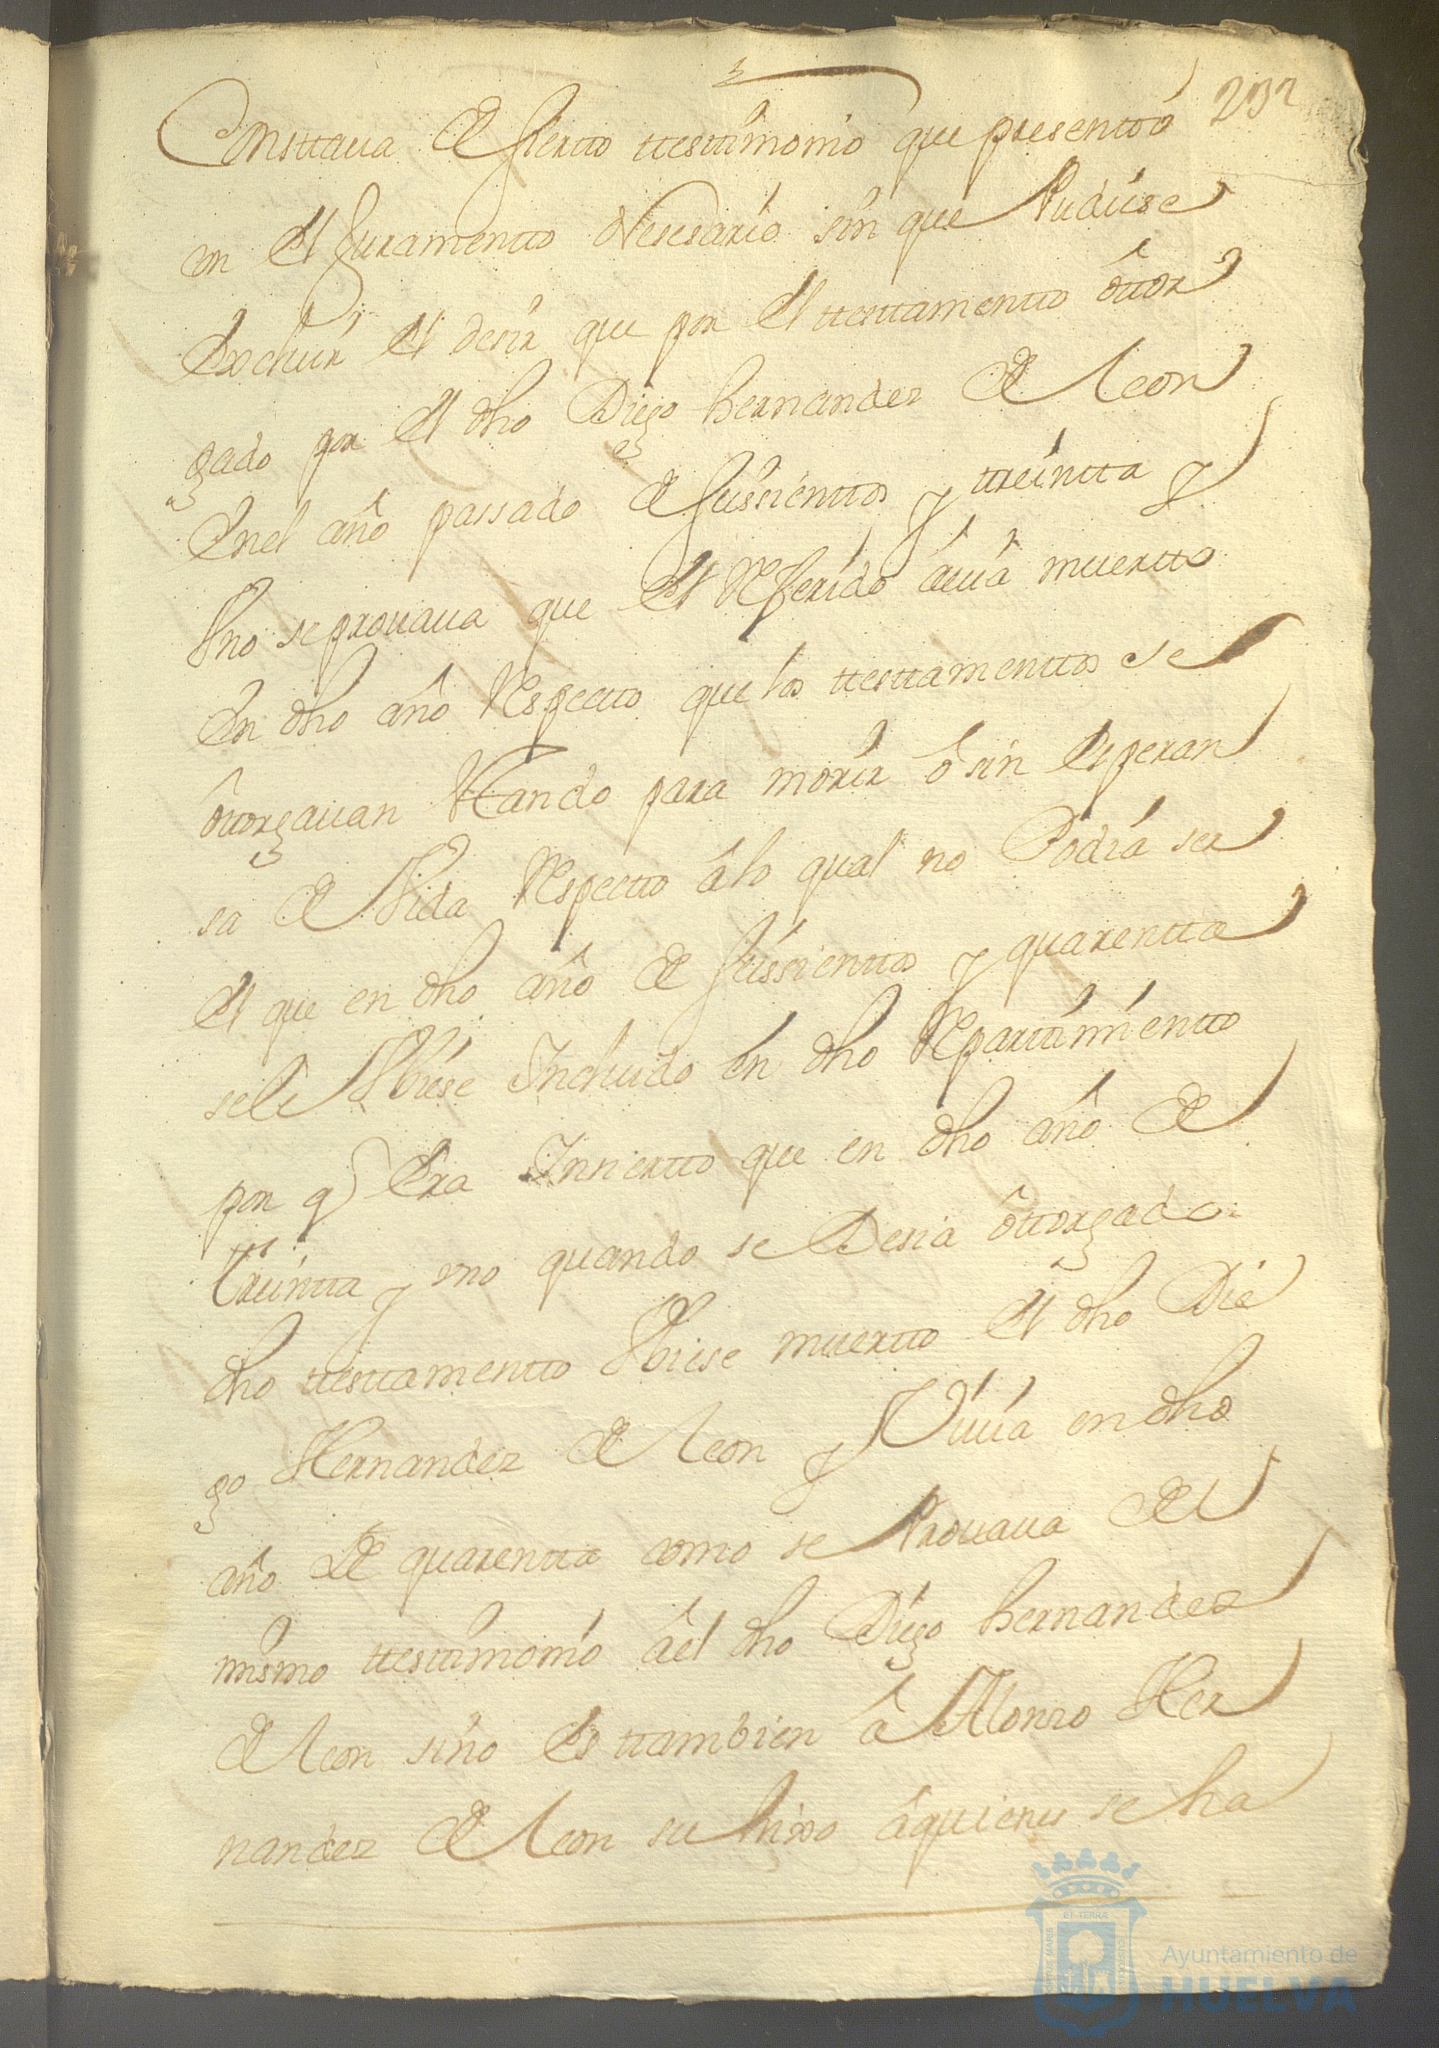 232
Consttaua de sierto ttesttimonio que presentto
en el Juramentto Nesesario sin que Pudiese
Excluir el desir que por el ttesttamentto ôttor
gado por el dho Diego hernandez de leon
En el año passado de seissienttos y ttreintta y
Vno se prouaua que el Referido auia muertto
En dho año Respecto que los ttesttamenttos se
ôttorgauan stando para morir ô sin Esperan
sa de Vida Respectto â lo qual no Podia ser
el que en dho año de seissienttos y quarentta
se le Vbiese Incluido en dho Reparttimientto
por q Era Inciertto que en dho año de
treintta y vno quando se Desia ôttorgado
dho ttesttamentto Vbiese muertto el dho Die
go Hernandez de leon y Viuia en dho
año De quarentta como se Prouaua del
mismo ttesttimonio â el dho Diego hernandez
de leon sino Es ttambien â Alonso Her
nandez de leon su hixo â quienes se ha
Ayuntamiento de
HUELVA